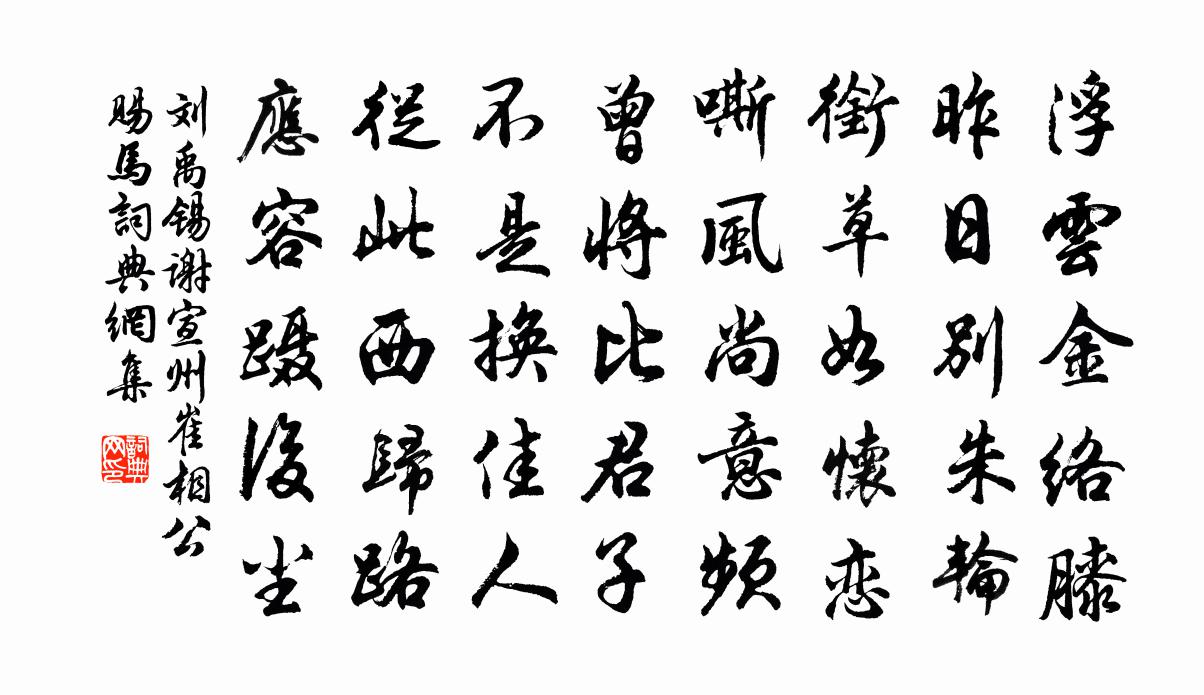 浮雲金絡膝
昨日別朱輪
銜草如懷恋
嘶風尚意頻
曾將比君子
不是換佳人
從此西歸路
應容躡後尘
刘禹锡谢宣州崔相公
賜馬詞典網集
詞典网印